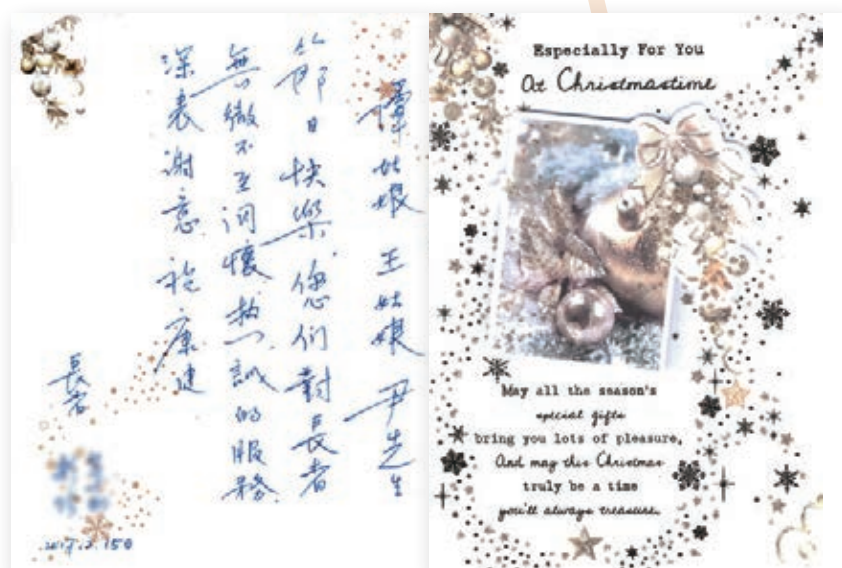 譚姑娘 王姑娘 尹先生
節日快樂 您们對長者
無微不至 懷 热誠的服務
深表謝意 祝康健
長者
Especially For You
At Christmastime
May all the season's
special gifts
bring you lots of pleasure,
And may this Christmas
truly be a time
you'll always treasure.